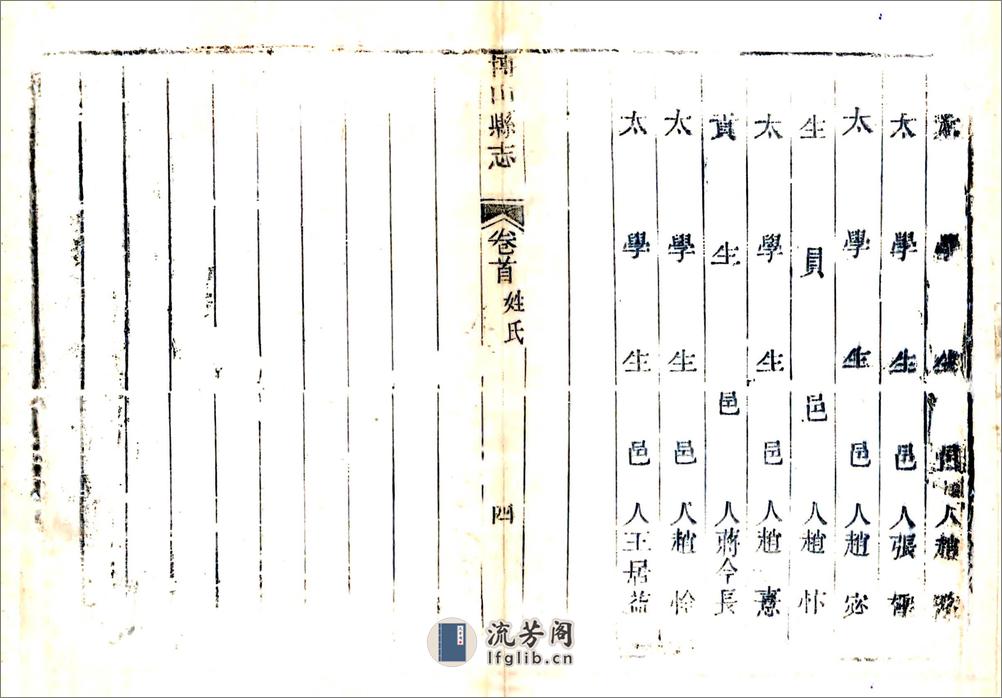 太學生邑人趙
太學生邑人張
太學生邑人趙宓
生員邑人趙忭
太學生邑人趙憙
貢生邑人蔣令長
太學生邑人趙
太學生邑人王居益
博山縣志
卷首
姓氏
四
流芳阁
lfglib.cn